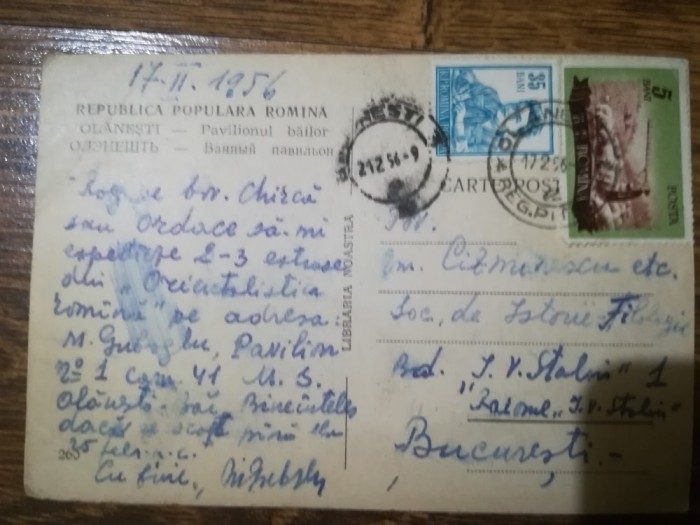 17-II. 1956
REPUBLICA POPULARA ROMINA
OLĂNEȘTI — Pavilionul băilor
ОЛЭНЕШТЬ — Ванный павильон
Rog pe tov. Chircă
sau Ordace să-mi
expedieze 2-3 extrase
din "Orientalistica
romînă" pe adresa:
M. Guboglu, Pavilion
nº 1 cam. 41 M. S.
Olănești-băi. Bineînțeles
dacă e scos pînă la
25 febr. a.c.
Cu bine,
265
LIBRARIA NOASTRA
NEȘTI
21.2.56-9
35
BANI
R.P. ROMINA
5
BANI
R.P. ROMINA
POSTA
17.2.56
REG. PIT
CARTE POST
Tov.
etc.
Soc. de Istorie Filologie
Bd. "I. V. Stalin" 1
Raionul "I. V. Stalin"
București.-